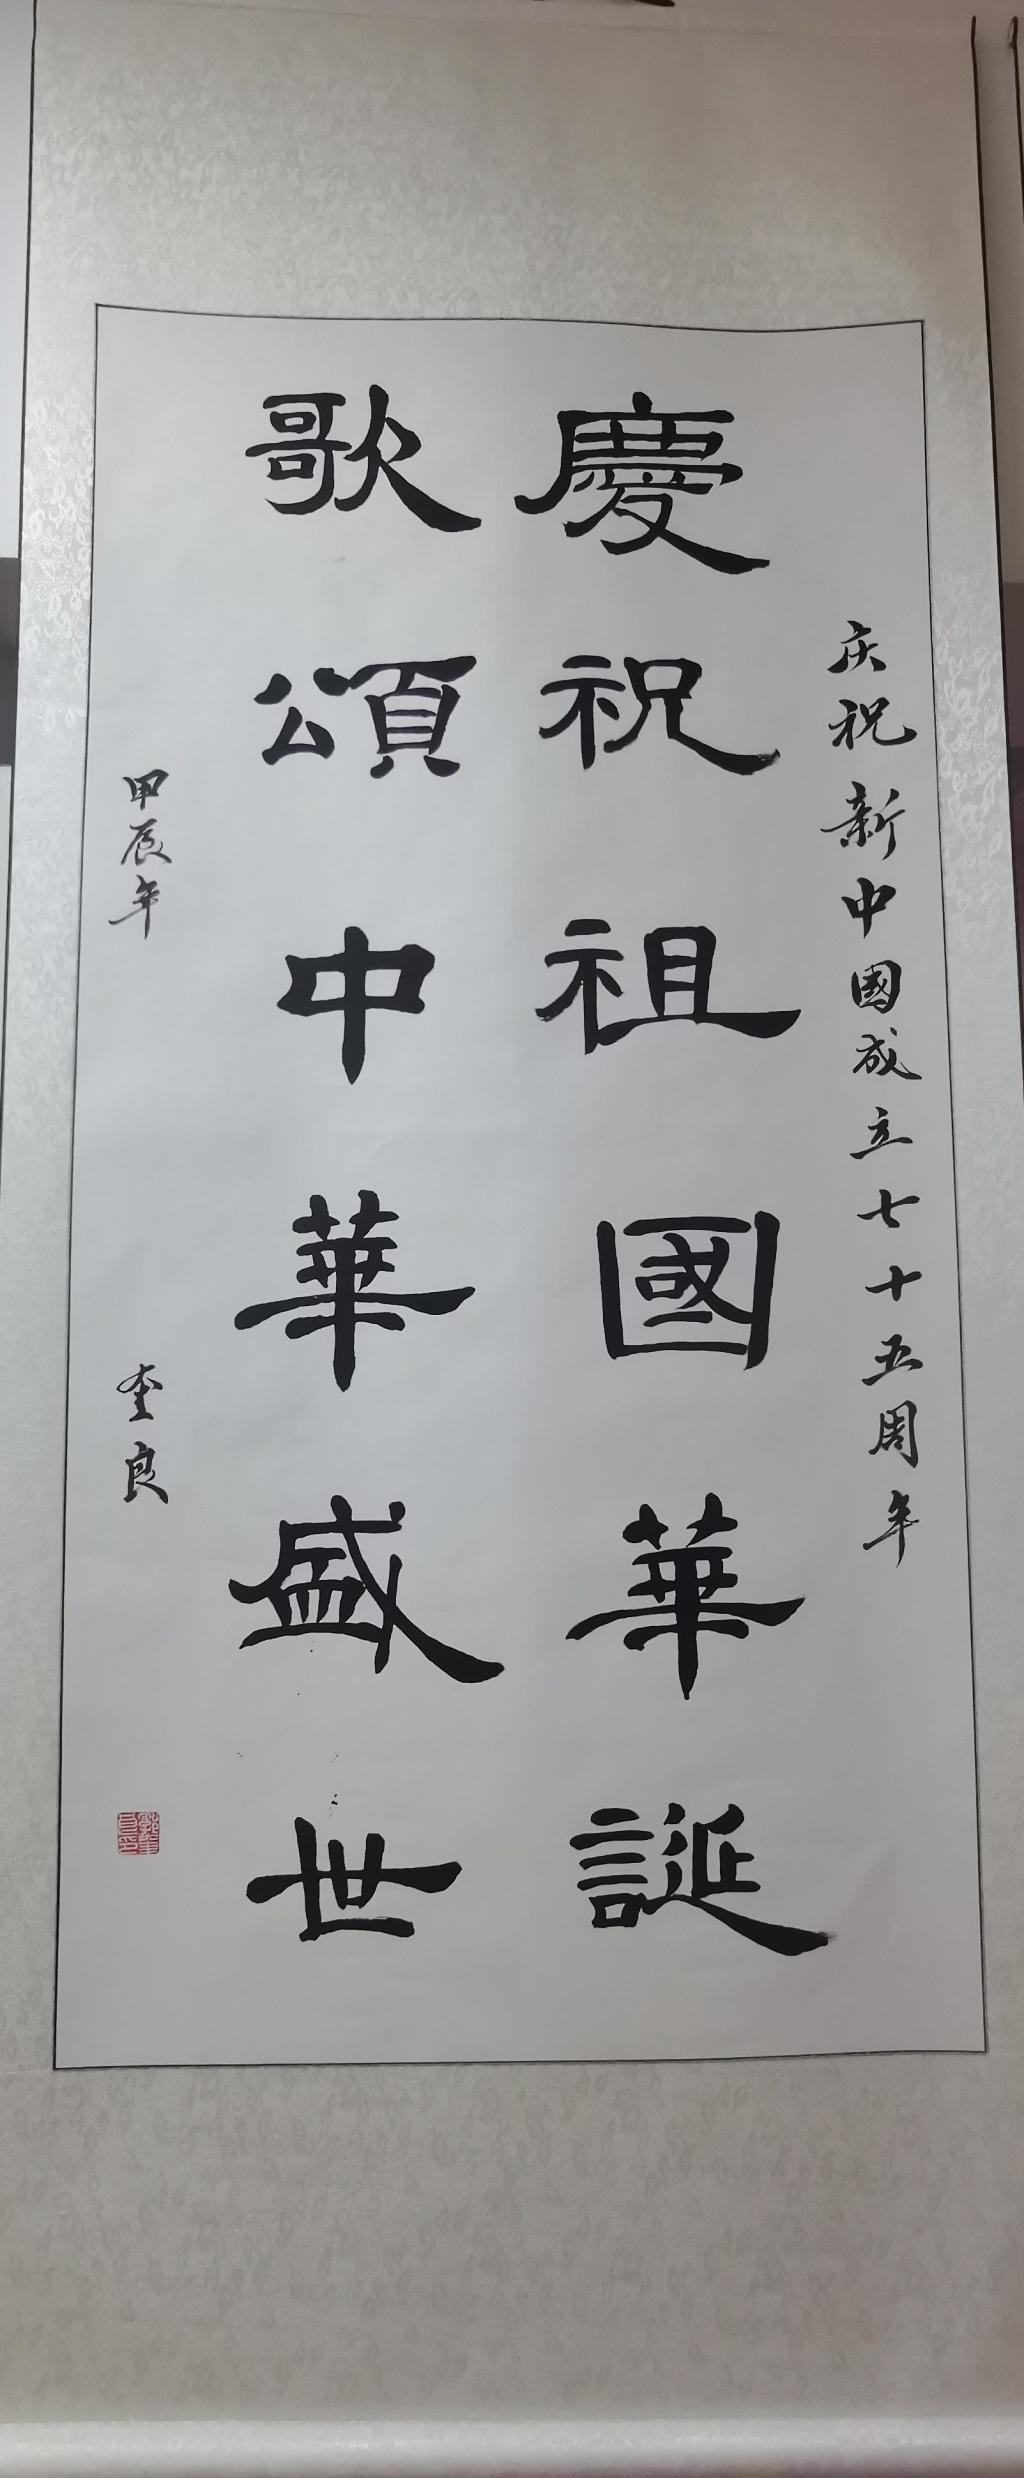 庆祝新中國成立七十五周年
慶祝祖國華誕
歌頌中華盛世
甲辰年 奎良